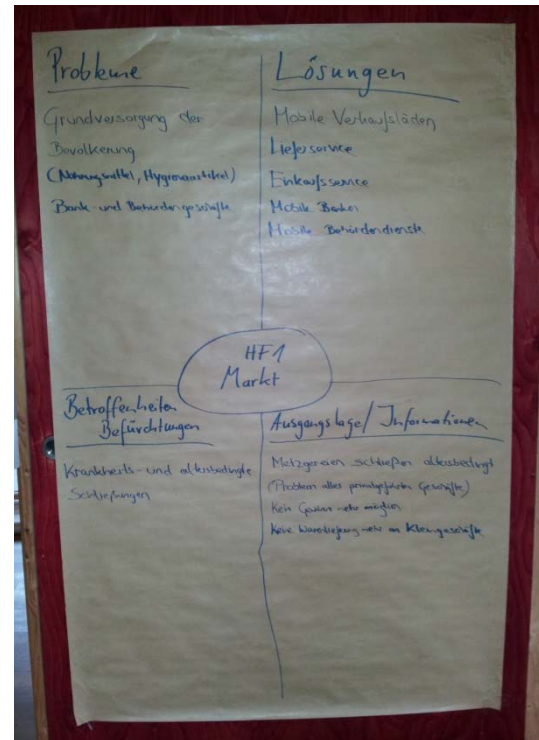 Probleme
Grundversorgung der
Bevölkerung
(Nahrungsmittel, Hygieneartikel)
Bank- und Behördengeschäfte
Lösungen
Mobile Verkaufsläden
Lieferservice
Einkaufsservice
Mobile Banken
Mobile Behördendienste
HF1
Markt
Betroffenheiten
Befürchtungen
Krankheits- und altersbedingte
Schließungen
Ausgangslage / Informationen
Metzgereien schließen altersbedingt
(Problem aller privatgeführten Geschäfte)
Kein Gewinn mehr möglich
Keine Warenlieferung mehr an Kleingeschäfte